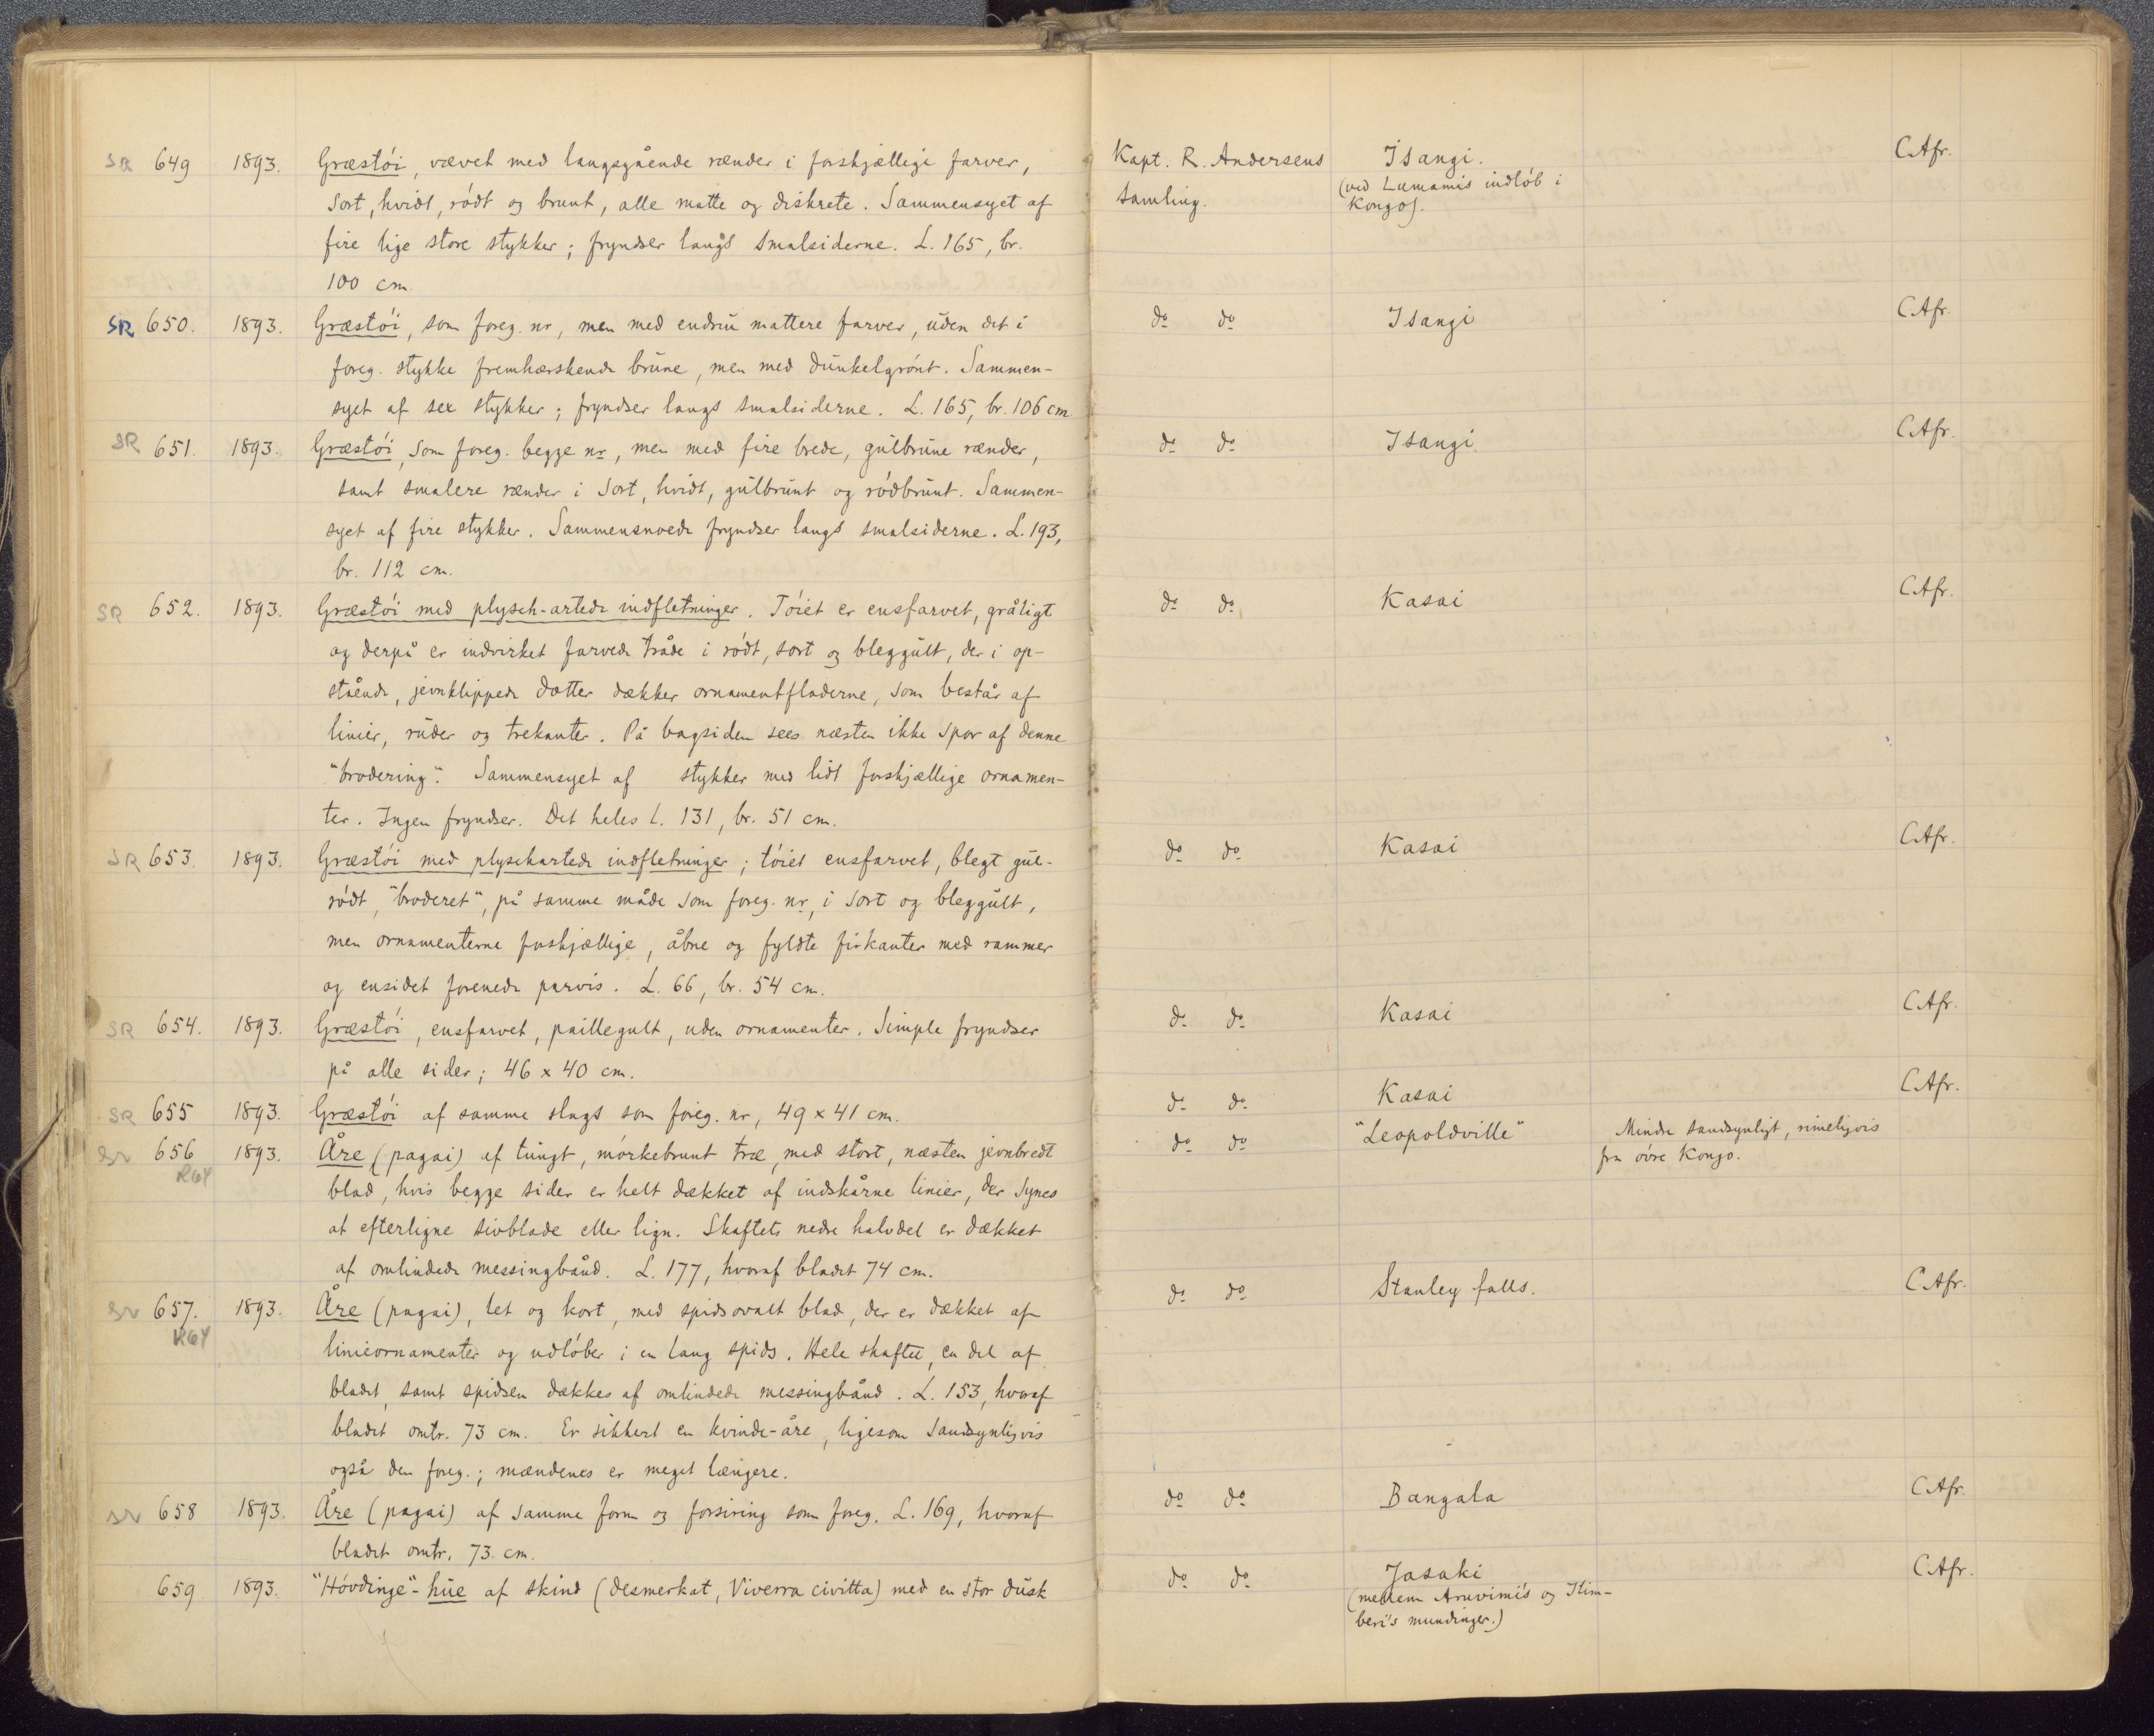 SR 649 1893. Græstöi, vævet med langsgående rænder i forskjællige farver, Kapt. R. Andersens Isangi. C.Afr.
sort, hvidt, rödt og brunt, alle matte og diskrete. Sammensyet af samling. (ved Lumamis indlöb i
fire lige store stykker; fryndser langs smalsiderne. L. 165, br. Kongo).
100 cm
SR 650. 1893. Græstöi, som foreg. nr, men med endnu mattere farver, uden det i do do Isangi C.Afr.
foreg. stykke fremhærskende brune, men med dunkelgrönt. Sammen-
syet af sex stykker; fryndser langs smalsiderne. L. 165, br. 106 cm
SR 651. 1893. Græstöi, som foreg. begge nr, men med fire brede, gulbrune rænder, do do Isangi. C.Afr.
samt smalere rænder i sort, hvidt, gulbrunt og rödbrunt. Sammen-
syet af fire stykker. Sammensnoede fryndser langs smalsiderne. L. 193,
br. 112 cm.
SR 652. 1893. Græstöi med plysch-artede indfletninger. Töiet er ensfarvet, gråligt do do Kasai C.Afr.
og derpå er indvirket farvede tråde i rödt, sort og bleggult, der i op-
stående, jevnklippede dotter dækker ornamentfladerne, som består af
linier, ruder og trekanter. På bagsiden sees næsten ikke spor af denne
"brodering". Sammensyet af stykker med lidt forskjællige ornamen-
ter. Ingen fryndser. Det heles L. 131, br. 51 cm.
SR 653. 1893. Græstöi med plyschartede indfletninger; töiet ensfarvet, blegt gul- do do Kasai C.Afr.
rödt, "broderet", på samme måde som foreg. nr, i sort og bleggult,
men ornamenterne forskjællige, åbne og fyldte firkanter med rammer
og ensidet forenede parvis. L. 66, br. 54 cm.
SR 654. 1893. Græstöi, ensfarvet, paillegult, uden ornamenter. Simple fryndser do do Kasai C.Afr.
på alle sider; 46 x 40 cm.
SR 655 1893. Græstöi af samme slags som foreg. nr, 49 x 41 cm. do do Kasai C.Afr.
656 1893. Åre (pagai) af tungt, mörkebrunt træ, med stort, næsten jevnbredt do do "Leopoldville" Mindre sandsynligt, rimeligvis
R64 blad, hvis begge sider er helt dækket af indskårne linier, der synes fra övre Kongo.
at efterligne sivblade eller lign. Skaftets nedre halvdel er dækket
af omlindede messingbånd. L. 177, hvoraf bladet 74 cm.
657. 1893. Åre (pagai), let og kort, med spidsovalt blad, der er dækket af do do Stanley falls. C.Afr.
R64 linieornamenter og udlöber i en lang spids. Hele skaftet, en del af
bladet, samt spidsen dækkes af omlindede messingbånd. L. 153, hvoraf
bladet omtr. 73 cm. Er sikkert en kvinde-åre, ligesom sandsynligvis
også den foreg.; mændenes er meget længere.
658 1893. Åre (pagai) af samme form og forsiring som foreg. L. 169, hvoraf do do Bangala C.Afr.
bladet omtr. 73 cm.
659 1893. "Hövdinge"-hue af skind (desmerkat, Viverra civitta) med en stor dusk do do Jasaki C.Afr.
(mellem Aruvimi's og Itim-
beri's mundinger.)